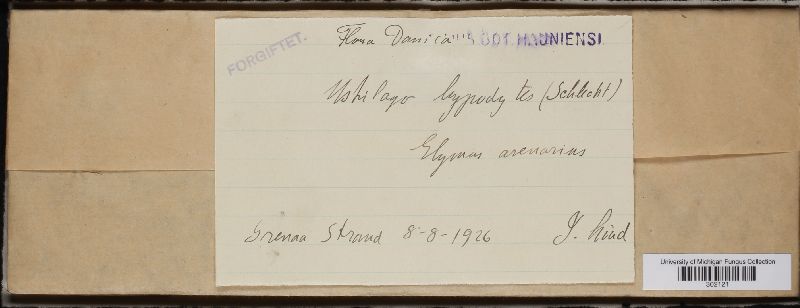 Flora Danica BOT. HAUNIENSI
FORGIFTET.
Ustilago hypodytes (Schlecht)
Elymus arenarius
Grenaa Strand 8-8-1926 J. Lind
University of Michigan Fungus Collection
302121